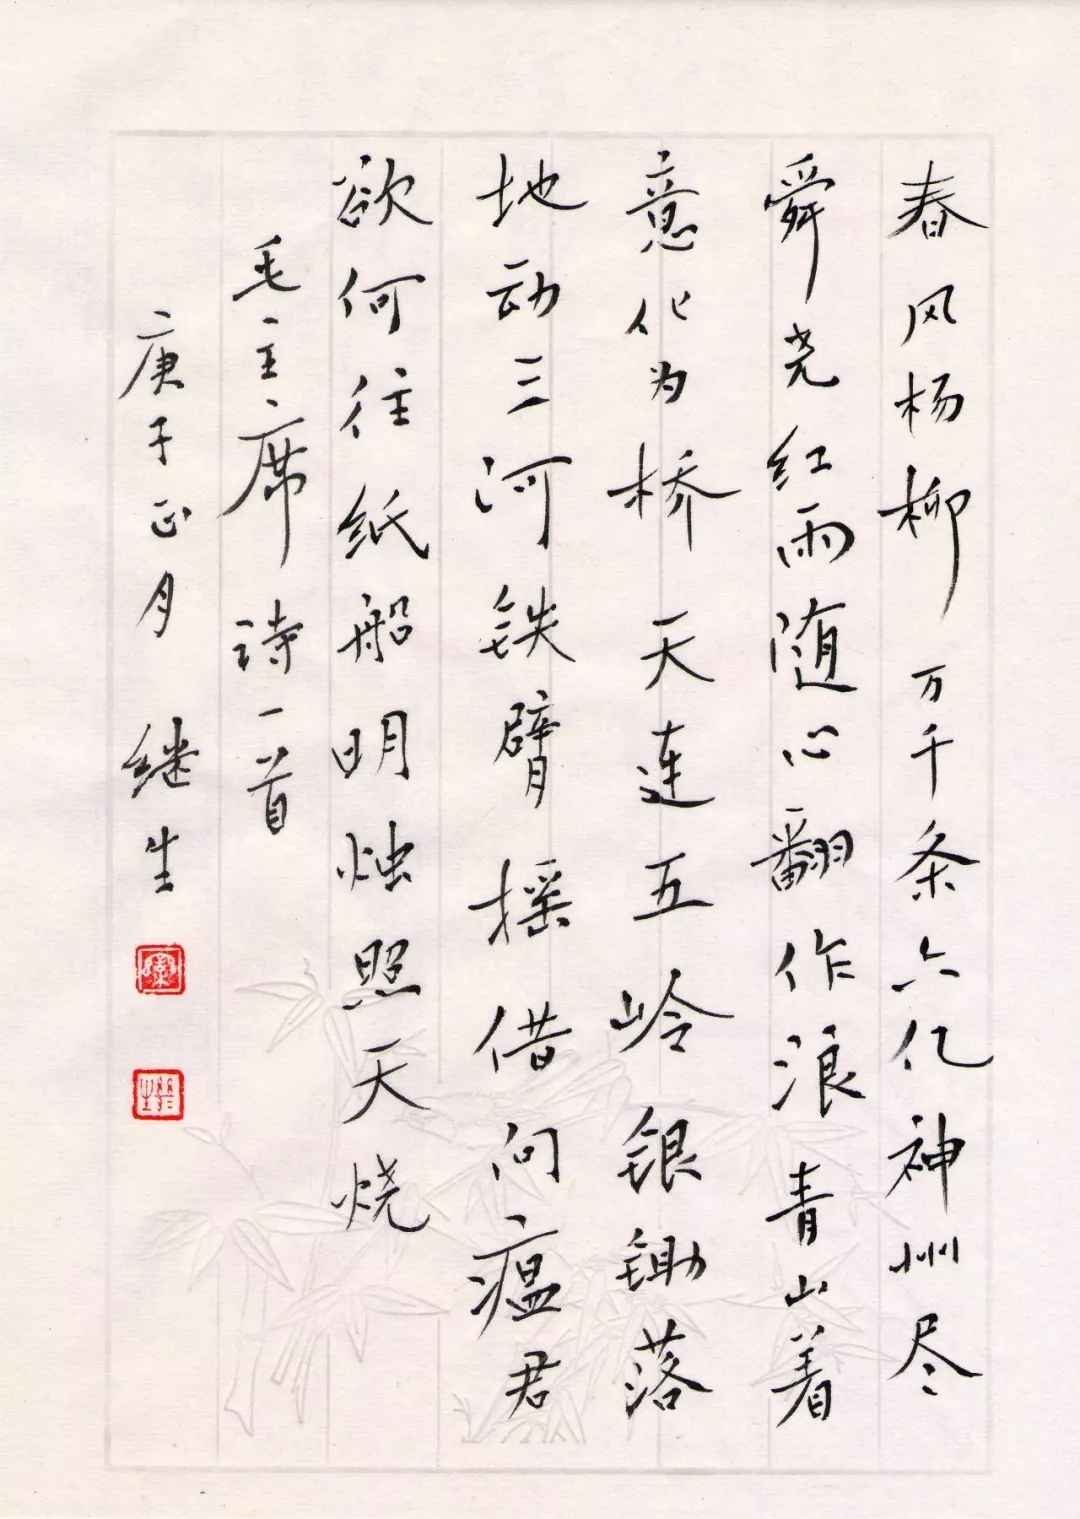 春风杨柳万千条六亿神州尽
舜尧红雨随心翻作浪青山着
意化为桥天连五岭银锄落
地动三河铁臂摇借问瘟君
欲何往纸船明烛照天烧
毛主席诗一首
庚子正月继生